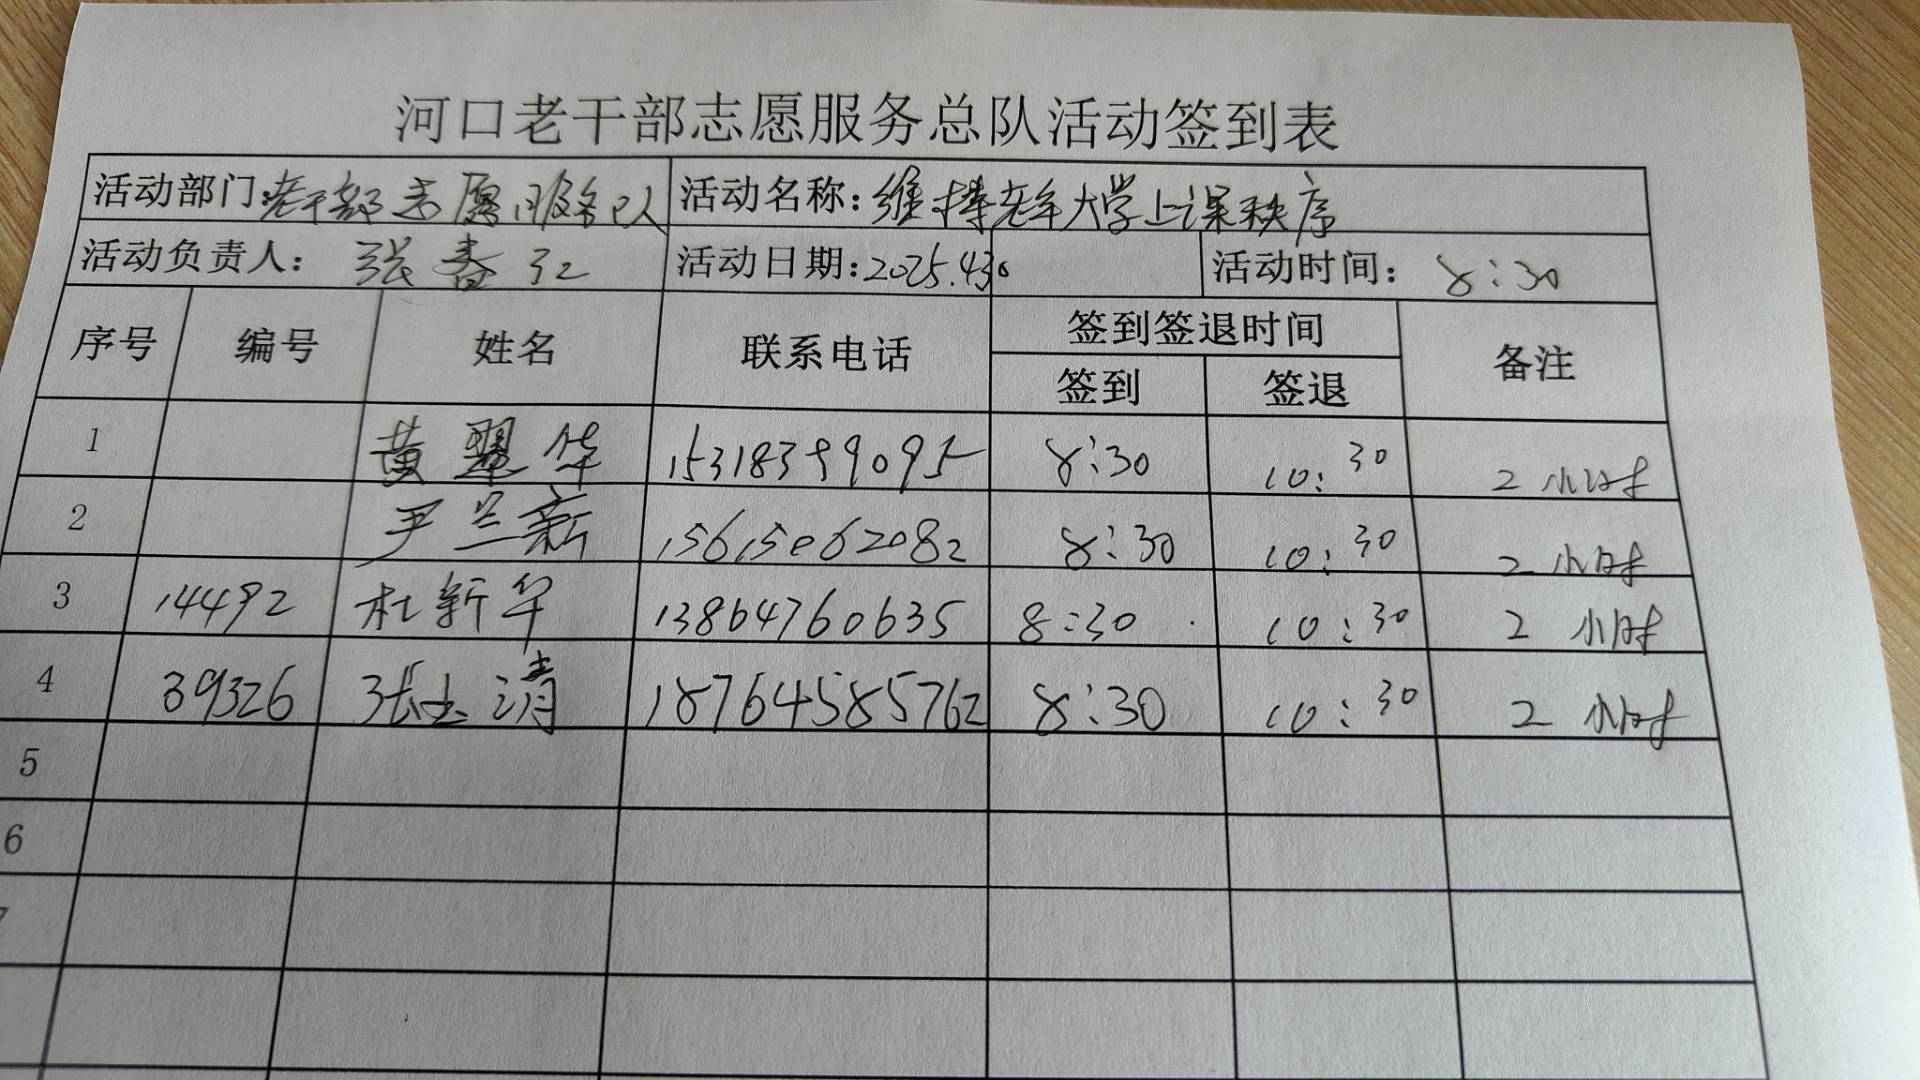 河口老干部志愿服务总队活动签到表
活动部门:老干部志愿服务队 活动名称:维持老年大学上课秩序
活动负责人: 张春江 活动日期:2025.4.30 活动时间: 8:30
序号 编号 姓名 联系电话 签到签退时间 备注
签到 签退
1 黄翠华 15318399095 8:30 10:30 2小时
2 尹兰新 15615062082 8:30 10:30 2小时
3 14492 杜新华 13864760635 8:30 10:30 2小时
4 39326 张玉清 18764585762 8:30 10:30 2小时
5
6
7